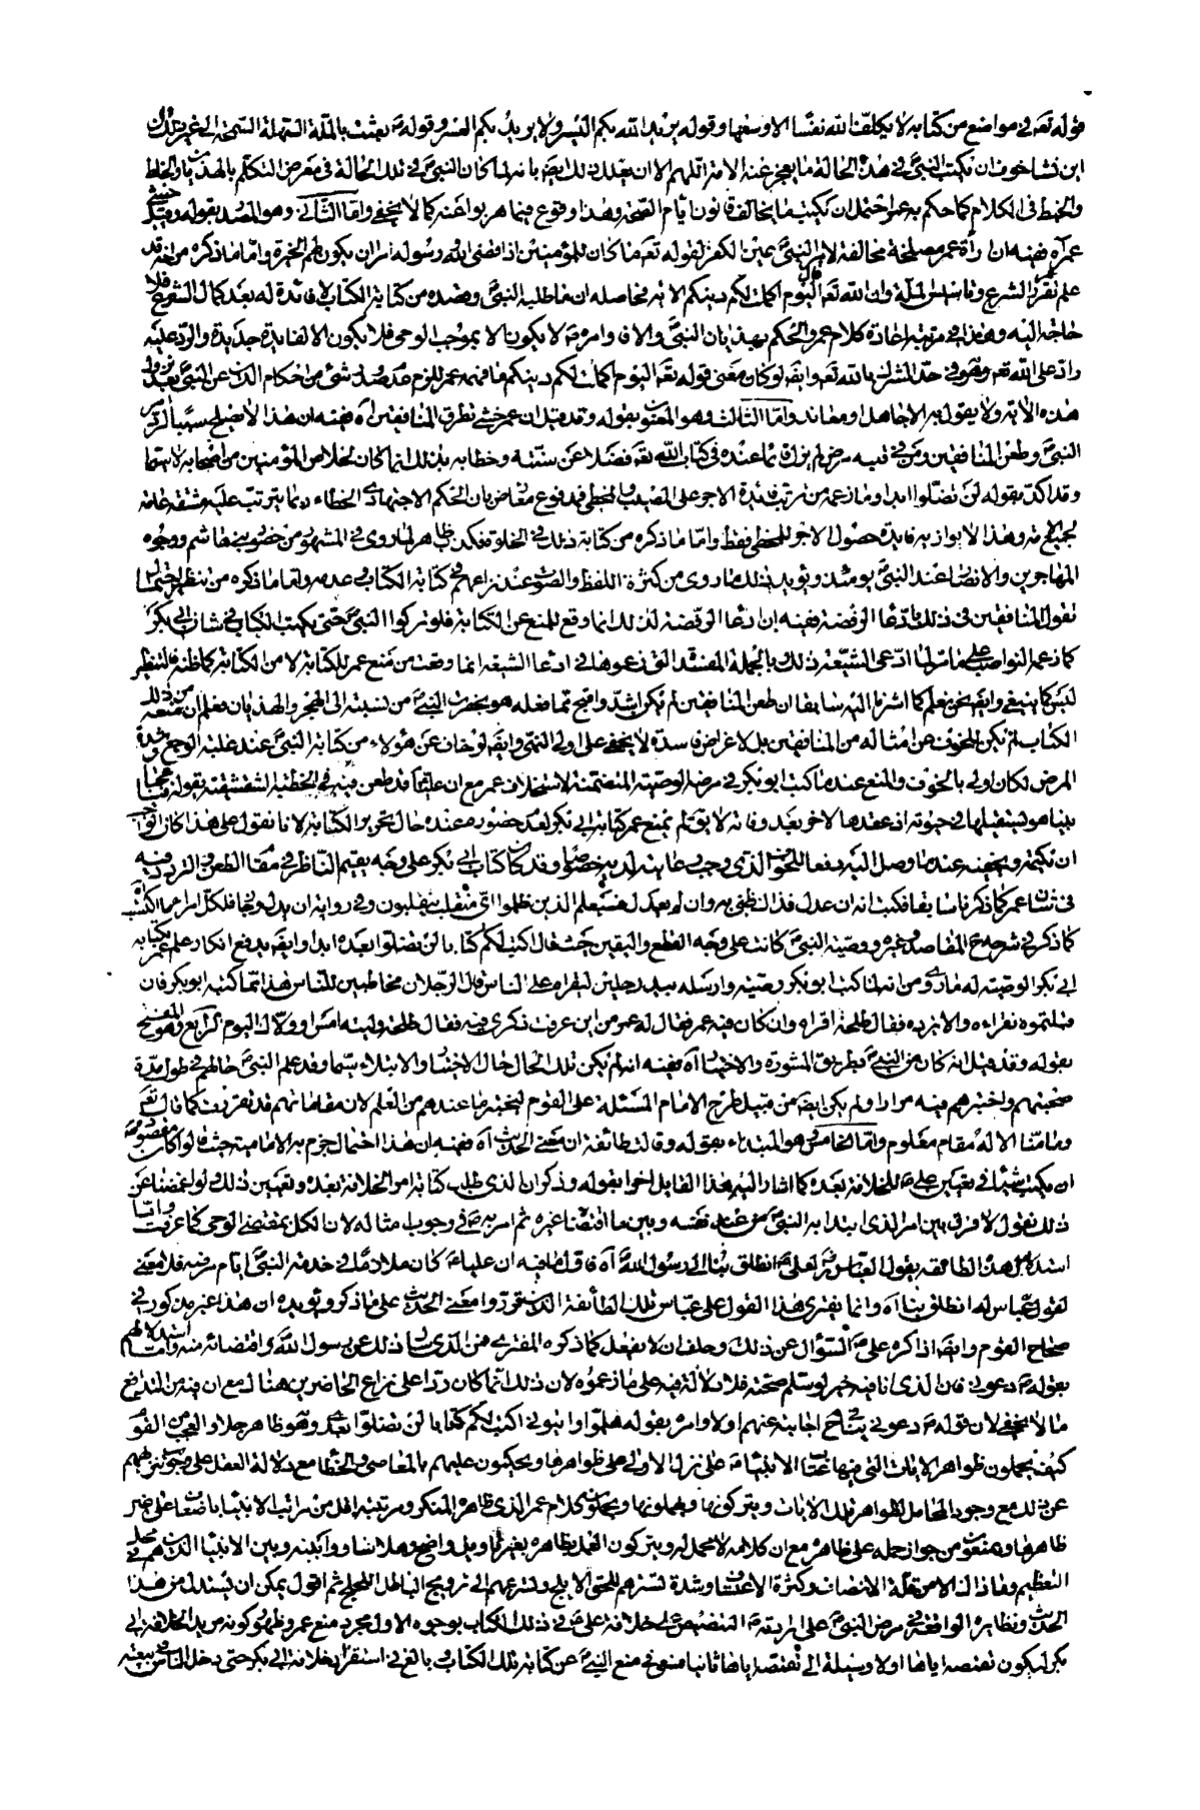 قوله تعم في مواضع من كتابه لا يكلف الله نفسا الا وسعها وقوله يريد الله بكم اليسر ولا يريد بكم العسر وقوله بعثت بالملة السهلة السمحة الى غير ذلك
خوف ان يكتب النبي في هذه الحالة ما يعجز عنه الامة اللهم الا ان يعلل ذلك ايضا بانه لما كان النبي في تلك الحالة في معرض التكلم بالهذيان والخلط
والخبط في الكلام كما حكم به عمر احتمل ان يكتب ما يخالف قانون ايام الصحة وهذا وقوع فيما هربوا عنه كما لا يخفى واما الثاني وهو المصدر بقوله وقيل خشي
عمر آه ففيه ان رأى عمر مصلحة مخالفة لامر النبي عين الكفر لقوله تعم ما كان للمؤمنين اذا قضى الله ورسوله امرا ان يكون لهم الخيرة واما ما ذكره من انه قد
علم تقرر الشرع وتأسيس الملة وان الله تعم قال اليوم اكملت لكم دينكم الاية فحاصله ان ما طلبه النبي وقصده من كتابة الكتاب لا فائدة له بعد كمال الشرع فلا
حاجة اليه وهذا في مرتبة اعادة كلام عمر والحكم بهذيان النبي والا فاوامره لا يكون الا بموجب الوحي فلا يكون الا لفايدة جديدة والرد عليه
راد على الله تعم وهو في حد الشرك بالله تعم وايضا لو كان معنى قوله تعم اليوم اكملت لكم دينكم ما فهمه عمر للزم عدم صدور شئ من احكام الدين عن النبي بعد نزول
هذه الاية ولا يقول به الا جاهل او معاند واما الثالث وهو المعنون بقوله وقد قيل ان عمر خشي تطرق المنافقين آه ففيه ان هذا لا يصلح سببا لترك امر
النبي وطعن المنافقين ومن في قلبه مرض لم يزل ثابتا عنده في كتاب الله تعم فضلا عن سنته وخطابه بذلك انما كان لخلاص المؤمنين من اصحابه لا سيما
وقد اكد بقوله لن تضلوا ابدا وما زعمه من ترتب فائدة الاجر على المصيب والمخطئ فمدفوع بان الحكم الاجتهادي الخطاء ربما يترتب عليه مشقة عامة
لجميع الامة وهذا لا يوازيه فايدة حصول الاجر للمخطئ فقط واما ما ذكره من كتابة ذلك في الخلوة فكذب ظاهر لما روي في المشهور من حضور بني هاشم ووجوه
المهاجرين والانصار عند النبي يومئذ ويؤيد ذلك ما روي من كثرة اللفظ والصوت عند نزاعهم في كتابة الكتاب وعدمه واما ما ذكره من تنظير احتمال
تقول المنافقين في ذلك بادعاء الرفضة ففيه ان ادعاء الرفضة لذلك انما وقع للمنع عن الكتابة فلو تركوا النبي حتى يكتب الكتاب في شان ابي بكر
كما زعمه النواصب او علي لما ادعى الشيعة ذلك بالجملة المفسدة التي زعموها في ادعاء الشيعة انما وقعت من منع عمر للكتابة لا من الكتابة كما ظنه فالتنظير
ليس كما ينبغي وايضا نحن نعلم كما اشرنا اليه سابقا ان طعن المنافقين لم يكن اشد واقبح مما فعله هو بحضرة النبي من نسبته الى الهجر والهذيان فعلم ان منعه من ذلك
الكتاب لم يكن لخوف عن امثاله من المنافقين بل لاغراض فاسدة لا يخفى على اولي النهى وايضا لو خاف عن هؤلاء من كتابة النبي عند غلبة الوجع وشدة
المرض لكان اولى بالخوف والمنع عنده ما كتب ابو بكر في مرضه الوصية المتضمنة لاستخلاف عمر مع ان عليا قد طعن فيه في الخطبة الشقشقية بقوله فيا عجبا
بينا هو يستقيلها في حيوته اذ عقدها لاخر بعد وفاته لا يق لم يمنع عمر كتابة ابي بكر لعدم حضوره عنده حال تحرير الكتابة لانا نقول على هذا كان الواجب
ان يكتمه ويخفيه عنده ما وصل اليه دفعا للخوف الذي وجب عليه لديه خصوصا وقد كان كتاب ابي بكر على وجه يقيم الناظر في مقام الطعن والتردد فيه
في شان عمر كما ذكرنا سابقا فكتب انه ان عدل فذاك ظني به وان لم يعدل فسيعلم الذين ظلموا اي منقلب ينقلبون وفي رواية ان بدل وغير فلكل امرئ ما اكتسب
كما ذكر في شرح المقاصد وغيره ووصية النبي كانت على وجه القطع واليقين حيث قال اكتب لكم كتابا لن تضلوا بعده ابدا وايضا يدفع انكار علم عمر بكتابة
ابي بكر الوصية له ما روي من انه لما كتب ابو بكر وصيته وارسله بيد رجلين ليقراه على الناس قال الرجلان مخاطبين للناس هذا ما كتبه ابو بكر فان
قبلتموه نقراءه والا نرده فقال طلحة اقراه وان كان فيه عمر فقال له عمر من اين عرفت ذكري فيه فقال طلحة وليته امس وولاك اليوم واما الرابع وهو المفتتح
بقوله وقد قيل انه كان من النبي بطريق المشورة والاختبار آه ففيه انه لم يكن تلك الحال حال الاختبار والابتلاء سيما وقد علم النبي حالهم في طول مدة
صحبتهم واختبرهم فيه مرارا ولم يكن ايضا من قبيل طرح الامام المسئلة على القوم ليختبر ما عندهم من العلم لان مقاماتهم قد تقررت كما قال تعم
وما منا الا له مقام معلوم واما الخامس وهو المبتداء بقوله وقالت طائفة ان معنى الحديث آه ففيه ان هذا احتمال جزم به الامامية حيث قالوا كان مقصوده
ان يكتب شيئا في تعيين علي للخلافة بعده كما اشار اليه هذا القايل اخرا بقوله وذكر ان الذي طلب كتابة امر الخلافة بعده وتعيين ذلك ولو اغمضنا عن
ذلك نقول لا فرق بين امر الذي ابتدا به النبي من عند نفسه وبين ما اقتضاه غيره ثم امر به في وجوب امتثاله لان الكل بمقتضى الوحي كما عرفت واما
استدلال هذه الطائفة بقول العباس لعلي انطلق بنا الى رسول الله آه فاقول فيه ان عليا كان ملازما في خدمة النبي ايام مرضه فلا معنى
لقول عباس له انطلق بنا آه وانما يفتري هذا القول على عباس تلك الطائفة الذين حوروا معنى الحديث على ما ذكر ويؤيده ان هذا غير مذكور في
صحاح القوم وايضا اذا كره علي السؤال عن ذلك وحلف ان لا يفعل كما ذكره المفتري فمن الذي سأل ذلك عن رسول الله واقتضائه منه واما استدلالهم
بقوله دعوني فان الذي انا فيه خير لو سلم صحته فلا دلالة فيه على ما زعموه لان ذلك انما كان ردا على نزاع الحاضرين هناك مع ان فيه من التدافع
ما لا يخفى لان قوله دعوني ينافي اجابته عنهم اولا وامره بقوله هلموا او ائتوني اكتب لكم كتابا لن تضلوا بعده وهو ظاهر جدا والعجب من القوم
كيف يحملون ظواهر الايات التي فيها عتاب الانبياء على نزل الاولى على ظواهرها ويحكمون عليهم بالمعاصي والخطا مع دلالة العقل على وجوب تنزيههم
عن ذلك مع وجود المحامل لظواهر تلك الايات ويتركونها ويهملونها ويحملون كلام عمر الذي ظاهره المنكر ومرتبته اقل من مراتب الانبياء باضعاف على غير
ظاهرها ويمنعون من جواز حمله على ظاهره مع ان كلامه لا محمل له ويتركون العمل بظاهره بغير تاويل واضح وهلا ساووا بينه وبين الانبياء الذين هم في محل
التعظيم وما ذاك الا من قلة الانصاف وكثرة الاعتساف وشدة تسترهم للحق الابلج وتسرعهم الى ترويج الباطل اللجلج ثم اقول يمكن ان يستدل من هذا
الحديث ونظايره الواقعة في مرض النبي على ارادته التنصيص على خلافة علي في ذلك الكتاب بوجوه الاول مجرد منع عمر وظهور كونه مريد الخلافة ابي
بكر ليكون تقمصه اياها اولا وسيلة الى تقمصه اياها ثانيا منعه في منع النبي عن كتابة تلك الكتاب وبالغ في استقرار خلافة ابي بكر حتى دخل الناس في بيعته